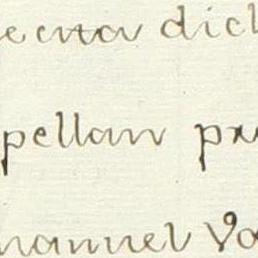 ecta dicl
pellan pr
manuel Va